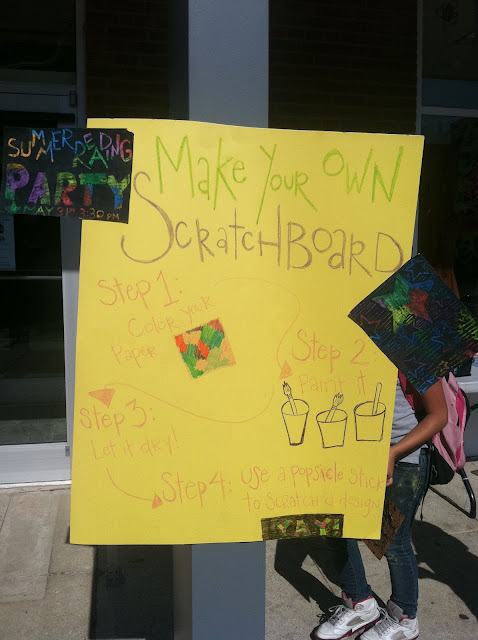 SUMMER READING
PARTY
MAY 31st 3:30 PM
Make Your OWN
ScratchBOARD
Step 1:
Color your
Paper
Step 2:
Paint it
Step 3:
Let it dry!
Step 4: Use a popsicle stick
to scratch a design